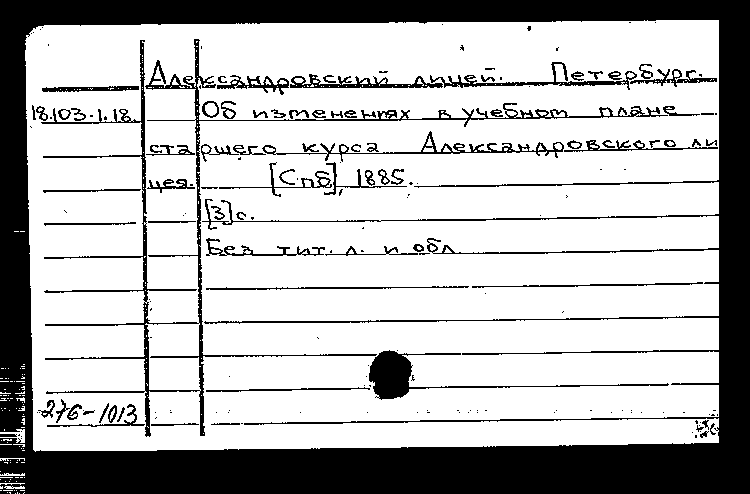 Александровский лицей. Петербург.
18.103.1.18. Об изменениях в учебном плане
старшего курса Александровского ли
цея. [Спб], 1885.
[3]с.
Без тит. л. и обл.
276-1013